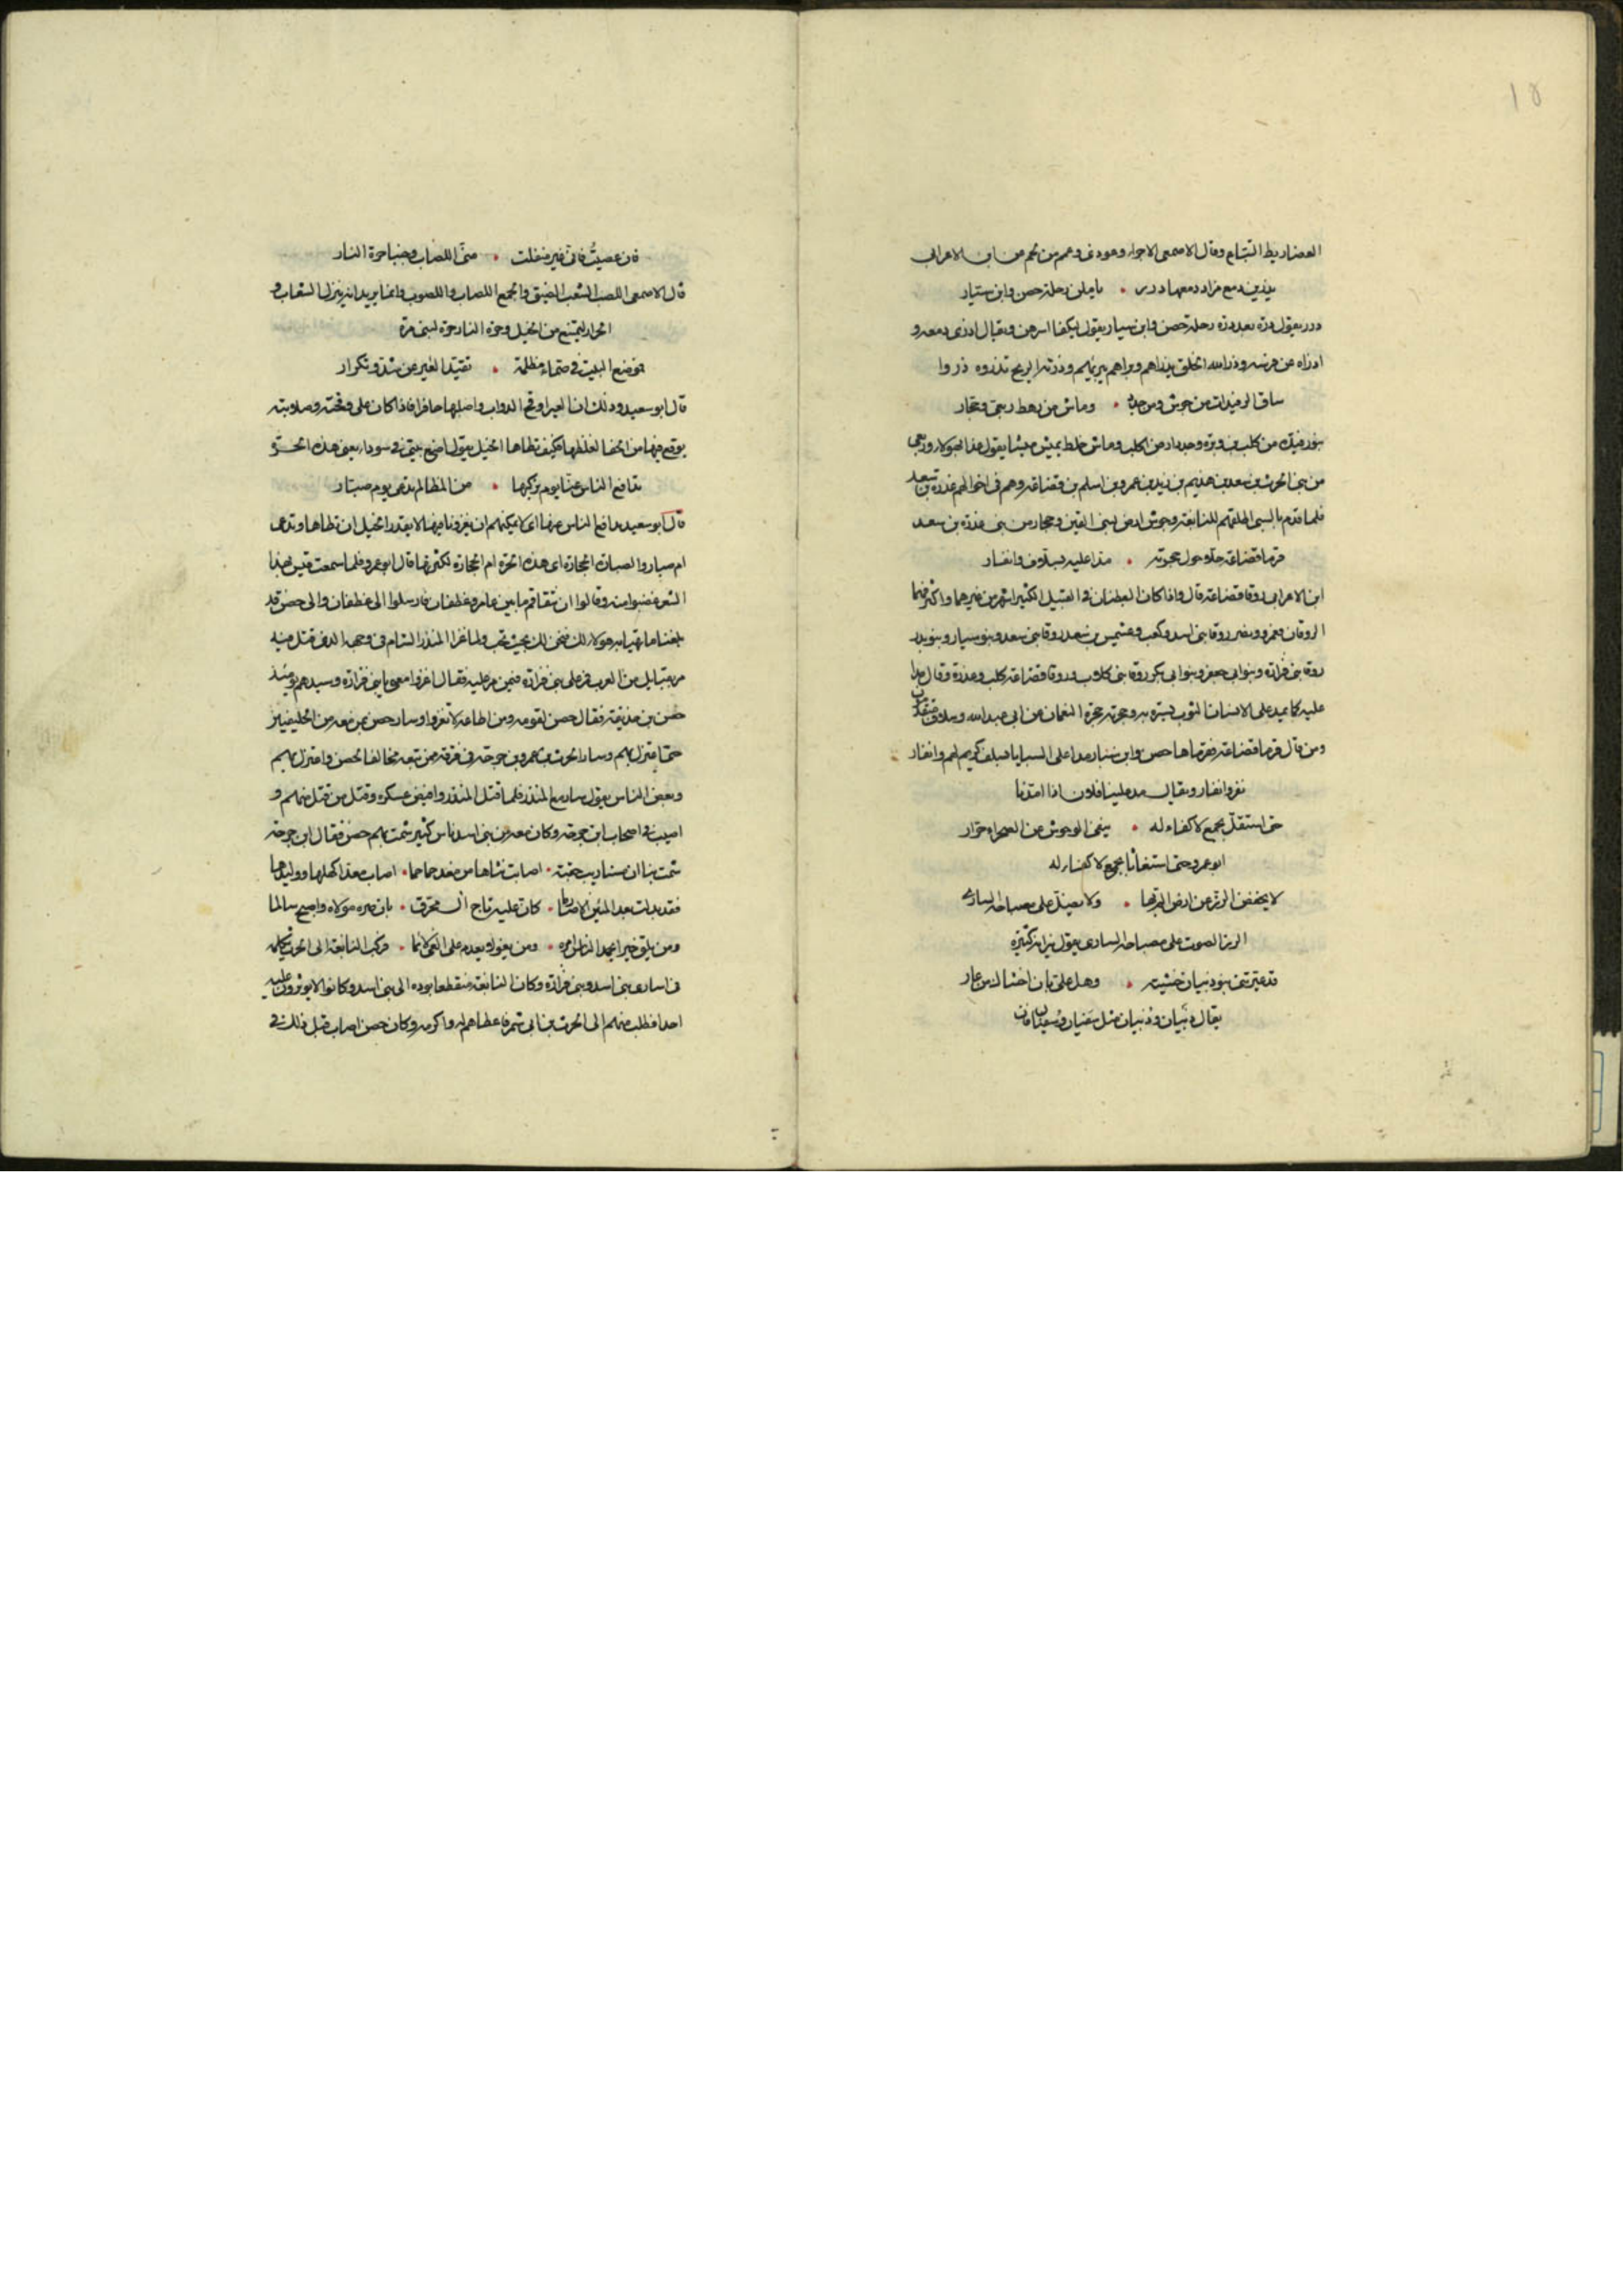 ١٥
العضاريط التباع وقال الاصمعى الاجراء وهو دنى وهم من لخم من ابن الاعرابى
يذرين دمع مزاد دمعها درر • يا ملن رحلة حصن وابن سيار
درر يقول درة بعد درة رحلة حصن وابن سيار يقول ليكفا اسرهن ويقال اذرى دمعه و
اذراه عن فرسه وذرا الله الخلق يذراهم وبراهم يبرئهم وذرته الريح تذروه ذروا
ساق الرفيدات من جوش ومن حدد • وماش من رهط ربعى وحجار
بنو رفيدة من كلب بن وبرة وحدد ارض لكلب وماش خلط يميش ميشا يقول هذا لهؤلاء وربعى
من بنى الحرث بن سعد بن هذيم بن زيد بن عمرو بن اسلم بن قضاعة وهم فى اخوالهم عذرة بن سعد
فلما قدم بالسبى اطلقهم للنابغة وجوش ارض لبنى القين وحجار من بنى عذرة بن سعد
قرما قضاعة حلا حول حجرته • مدا عليه بسلاف وانفار
ابن الاعرابى روقا قضاعة قال واذا كان البطنان فى القبيل الكثير اشهر من غيرهما واكثر فهما
الروقان وعمرو ونصر روقا بنى اسد وكعب وعبشمس بن سعد روقا بنى سعد وبنو سيار وبنو بدر
روقا بنى فزارة وبنو ابى جعفر وبنو ابى بكر روقا بنى كلاب وروقا قضاعة كلب وعذرة وقال مدا
عليه كما يمد على الانسان الثوب يستره به وحجرته حجرة النعمان عن ابى عبد الله وسلاف متقدمون
ومن قال قرما قضاعة فقرماها حصن وابن سيار مدا على السبايا بسلف كريم لهم وانفار
نفر وانفار ويقال مد علينا فلان اذا امتدنا
حتى استقل بجمع لا كفاء له • ينفى الوحوش عن الصحراء جرار
ابو عمرو حتى استغاثا بجمع لا كفاء له
لا يخفض الرز عن ارض الم بها • ولا يضل على مصباحه السارى
الرز الصوت على مصباحه السارى يقول نيرانه كثيرة
قد عيرتنى بنو ذبيان خشيته • وهل على بان اخشاك من عار
يقال ذبيان وذبيان مثل سفيان وسفيان فان
فان عصيت فانى غير منفلت • منى اللصاب فجنبا حرة النار
قال الاصمعى اللصب الشعب الضيق والجمع اللصاب واللصوب وانما يريد انه ينزل الشعاب و
الحرار ليمتنع من الخيل وحرة النار حرة لبنى مرة
موضع البيت فى صماء مظلمة • تقيد العير عن شد وتكرار
قال ابو سعيد وذلك ان العير اوقح الدواب واصلبها حافرا فاذا كان على وقحته وصلابته
يوقع فيها من الحفا لغلظها فكيف تطاها الخيل يقول اضع بيتى فى سوداء يعنى هذه الحرة
تدافع الناس عنا يوم نركبها • من المظالم تدعى يوم صبار
قال ابو سعيد تدافع الناس عنها اى لا يمكنهم ان يغزونا فيها لا يقدر الخيل ان تطاها وتدعى
ام صبار والصبارة الحجارة اى هذه الحرة ام الحجارة لكثرتها قال ابو عمرو فلما سمعت قيس بهذا
الشعر غضبوا منه وقالوا ان تتفاقم ما بين عامر وغطفان فارسلوا الى غطفان والى حصن قد
بلغنا ما تهيا به هؤلاء لك فنحن لك بحيث تحب ولما غزا المنذر الشام فى وجهه الذى قتل فيه
مر بقبايل من العرب فمر على بنى فزارة فيمن مر عليه فقال اغزوا معى يا بنى فزارة وسيدهم يومئذ
حصن بن حذيفة فقال حصن لقومه ومن اطاعه لا تغزوا وسار حصن بمن معه من الحليفين
حتى اعتزل بهم وسار الحرث بن عمرو بن جوخة فى فرقة ممن تبعه مخالفا لحصن واعتزل بهم
وبعض الناس يقول سار مع المنذر فلما قتل المنذر وافيض عسكره وقتل من قتل منهم و
اصيب فى اصحاب ابن جوخة وكان معه من بنى اسد ناس كثير شمت بهم حصن فقال ابن جوخة
شمت بنا ان • اصابت • اصاب معدا كهلها ووليدها
فقد بدلت بعد المئين • كان عليه تاج آل محرق • بان ضره مولاه واصبح سالما
ومن يلق خيرا يحمد الناس امره • ومن يغو لا يعدم على الغى لائما • فركب النابغة الى الحرث يكلمه
فى اسارى بنى اسد وبنى فزارة وكان النابغة منقطعا بوده الى بنى اسد وكانوا لا يوثرون عليه
احدا فطلب منهم الى الحرث بن ابى شمر فاعطاهم له واكرمه وكان حصن اصاب قبل ذلك فى